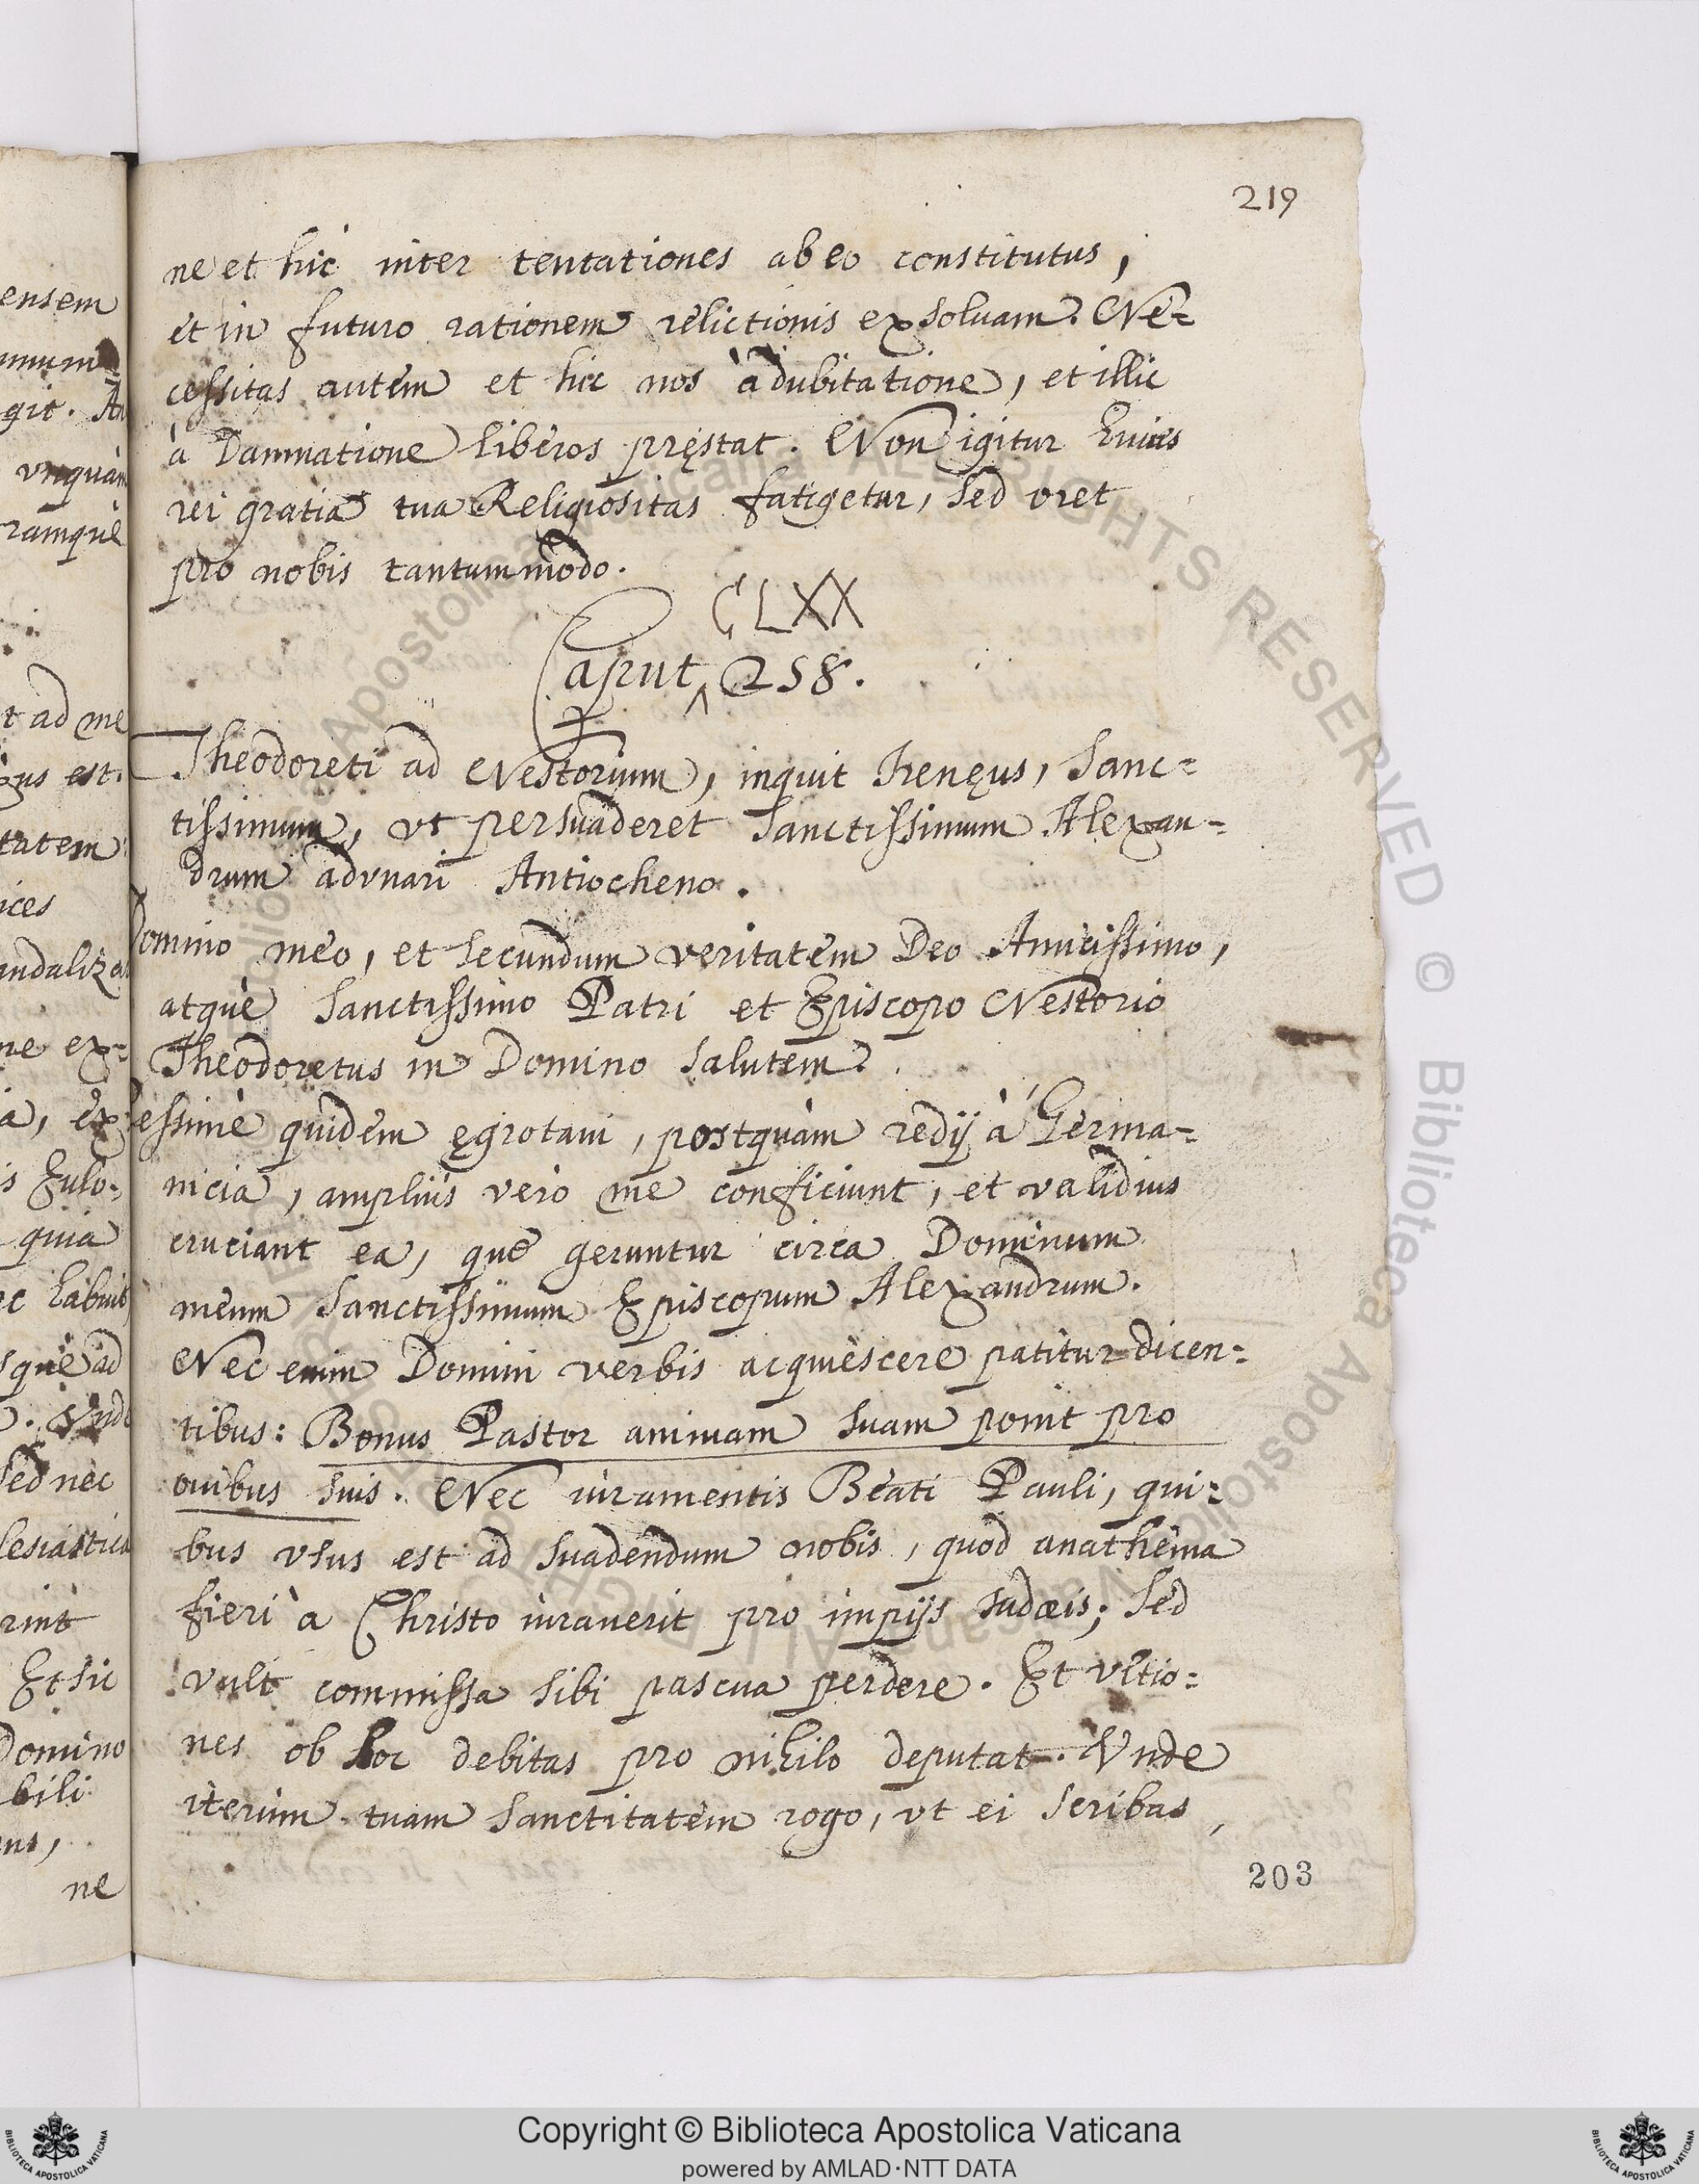 219
ne et hic inter tentationes ab eo constitutus,
et in futuro rationem relictionis exsoluam. Ne=
cessitas autem et hic nos à dubitatione, et illic
à Damnatione liberos pręstat. Non igitur huius
rei gratia tua Religiositas fatigetur, sed oret
pro nobis tantummodo.
CLXX
Caput ^ 258.
Theodoreti ad Nestorium, inquit Irenęus, Sanc=
tissimum, vt persuaderet Sanctissimum Alexan=
drum advnari Antiocheno.
Domino meo, et secundum veritatem Deo Amicissimo,
atque Sanctissimo Patri et Episcopo Nestorio
Theodoretus in Domino Salutem.
Pessime quidem ęgrotaui, postquàm redij à Germa=
nicia, ampliùs vero me conficiunt, et validius
cruciant ea, que geruntur circa Dominum
meum Sanctissimum Episcopum Alexandrum.
Nec enim Domini verbis acquiescere patitur dicen=
tibus: Bonus Pastor animam suam ponit pro
ouibus suis. Nec iuramentis Beati Pauli, qui=
bus vsus est ad suadendum nobis, quod anathema
fieri à Christo iurauerit pro impijs Iudæis; sed
vult commissa sibi pascua perdere. Et vltio=
nes ob hoc debitas pro nihilo deputat. Vnde
iterùm tuam Sanctitatem rogo, vt ei scribas,
203
ensem
git. An
vnquàm
ramque
t ad me
est.
tatem
ices
andaliza
ne ex=
ia, ex
is Eulo=
quia
ec habuit
sque ad
. Vnde
sed nec
lesiastica
rint
Et sic
Domino
bili
us,
ne
Copyright © Biblioteca Apostolica Vaticana
powered by AMLAD·NTT DATA
BIBLIOTECA APOSTOLICA VATICANA
BIBLIOTECA APOSTOLICA VATICANA